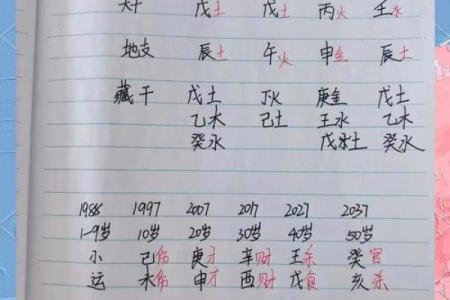 天干 戊土 戊土 丙火 壬水
地支 辰土 午火 申金 辰土
藏干 戊土 丁火 庚金 戊土
乙木 己土 壬水 乙木
癸水 戊土 癸水
1988 1997 2007 2017 2027 2037
1-9岁 10岁 20岁 30岁 40岁 50岁
小 己伤 庚才 辛财 壬杀 癸官
运 未伤 申才 酉财 戌食 亥杀